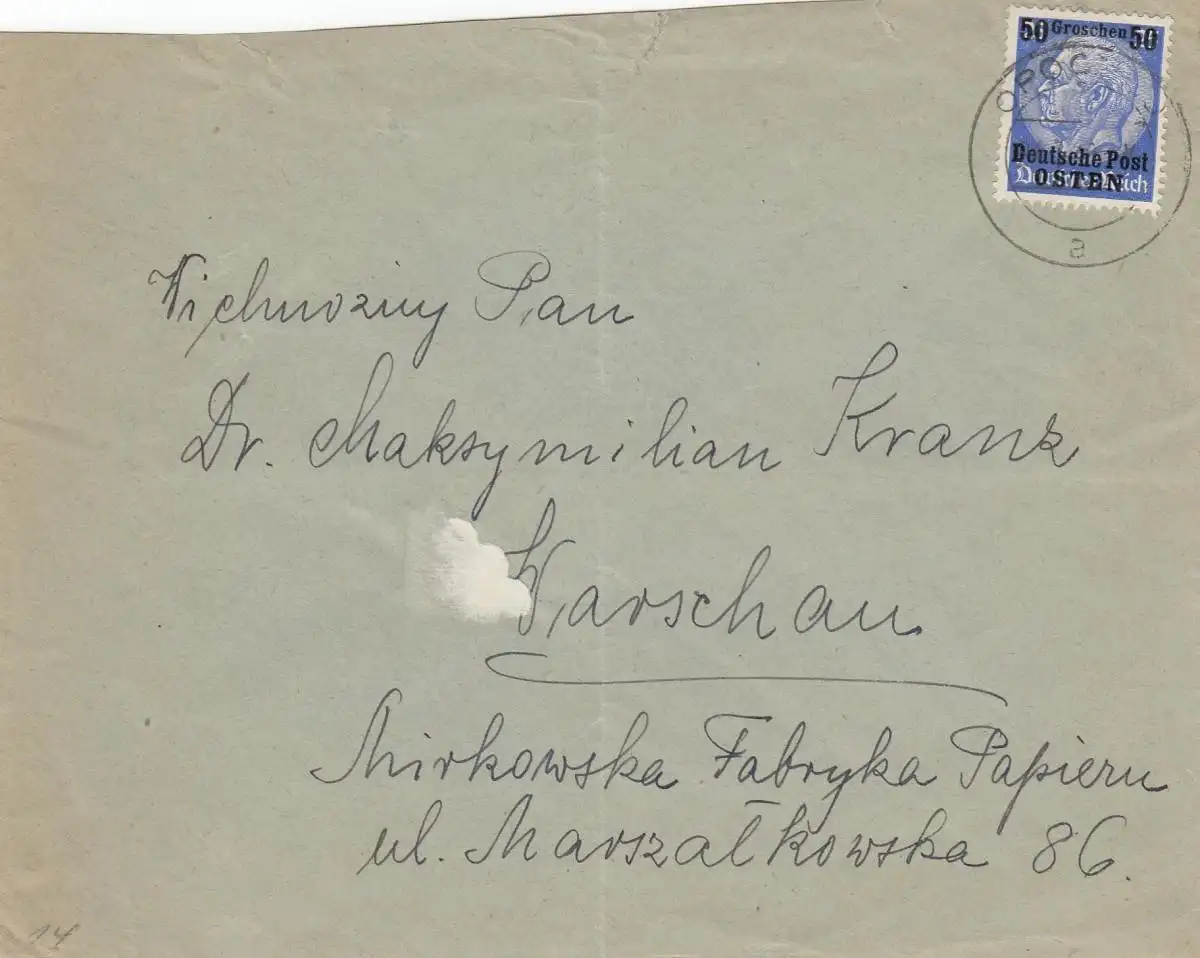 50 Groschen 50
Deutsche Post
OSTEN
Deutsches Reich
OPOC
a
Wielmożny Pan
Dr. Maksymilian Kranz
Warschau
Mirkowska Fabryka Papieru
ul. Marszałkowska 86.
14